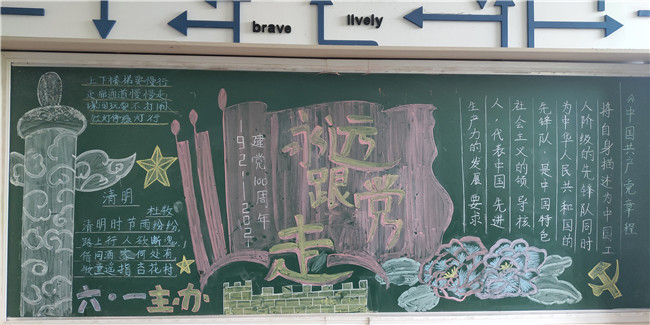 brave
lively
上下楼梯要慢行
走廊过道慢慢走
课间玩耍不打闹
红灯停绿灯行
清明
杜牧
清明时节雨纷纷,
路上行人欲断魂,
借问酒家何处有,
牧童遥指杏花村
六·一主办
建党100周年
1921 2021
永远
跟党
走
《中国共产党章程
将自身描述为中国工
人阶级的先锋队同时
为中华人民共和国的
先锋队,是中国特色
社会主义的领导核
心,代表中国先进
生产力的发展要求